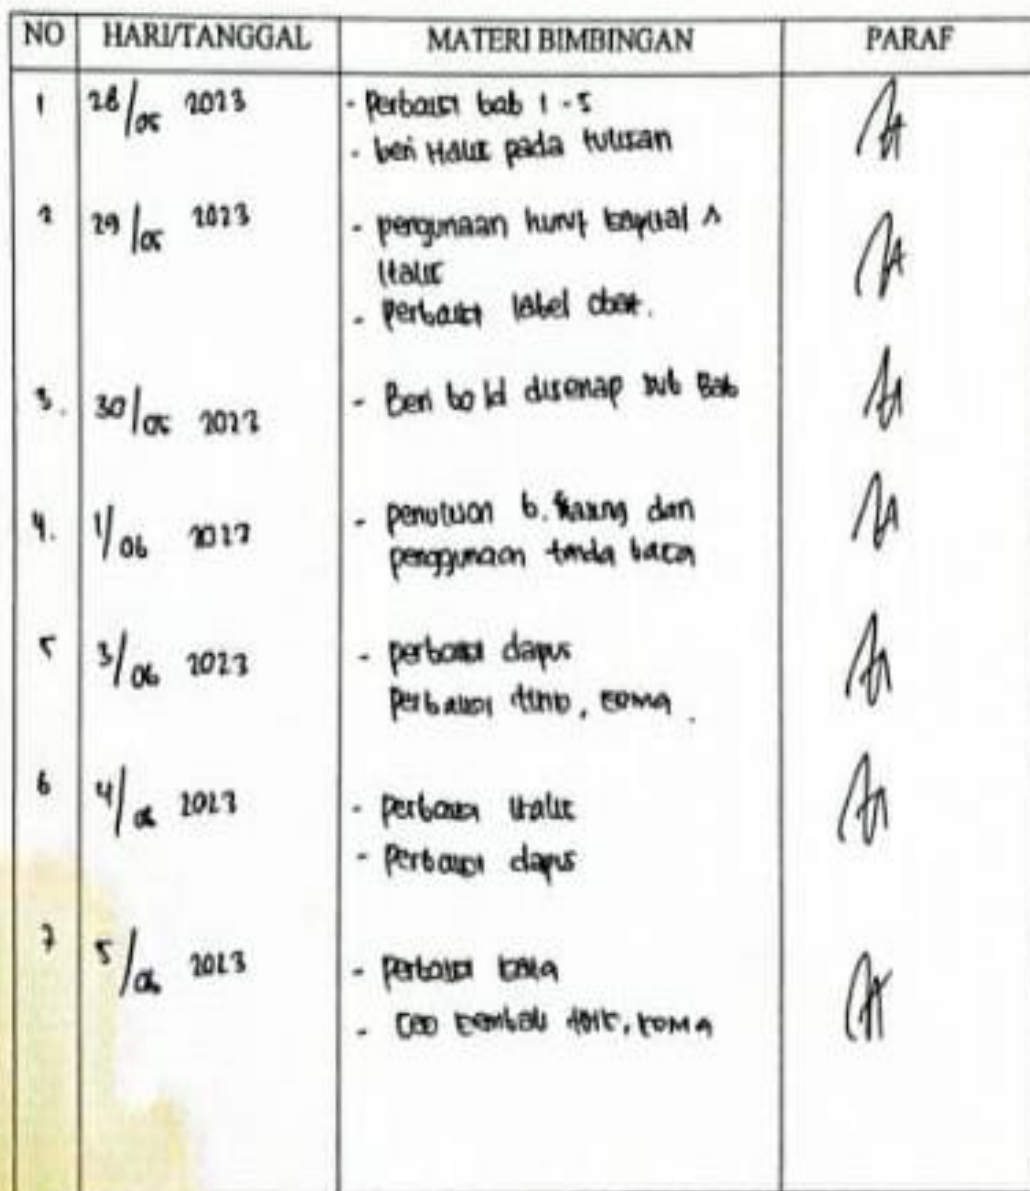 NO HARI/TANGGAL MATERI BIMBINGAN PARAF
1 28/05 2023 - Perbaiki bab 1 - 5
- beri Italic pada tulisan
2 29/05 2023 - pengunaan huruf kapital &
Italic
- Perbaiki label obat.
3. 30/05 2023 - Beri bold disetiap sub Bab
4. 1/06 2023 - penulisan b. Asing dan
penggunaan tanda baca
5 3/06 2023 - perbaiki dapus
Perbaiki titik, koma.
6 4/06 2023 - perbaiki italic
- Perbaiki dapus
7 5/06 2023 - perbaiki kata
- Cek kembali titik, koma